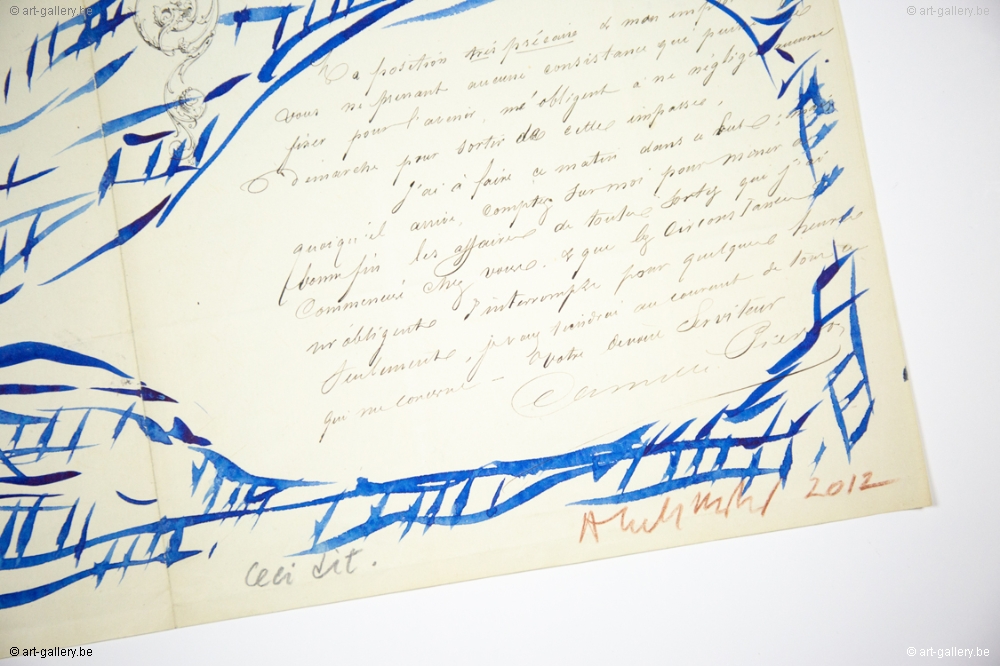 © art-gallery.be
© art-gallery.be
Ma position très précaire & mon
vous ne prenant aucune consistance qui puisse
fixer pour l'avenir, m'obligent à ne négliger aucune
démarche pour sortir de cette impasse.
J'ai à faire ce matin dans ce but :
quoiqu'il arrive, comptez sur moi pour mener à
bonne fin les affaires de toutes sortes que j'ai
commencé chez vous. & que les circonstances
m'obligent d'interrompre pour quelques heures
seulement, je vous tiendrai au courant de tout
qui me concerne — Votre dévoué serviteur
Camille
2012
Ceci dit.
© art-gallery.be
© art-gallery.be